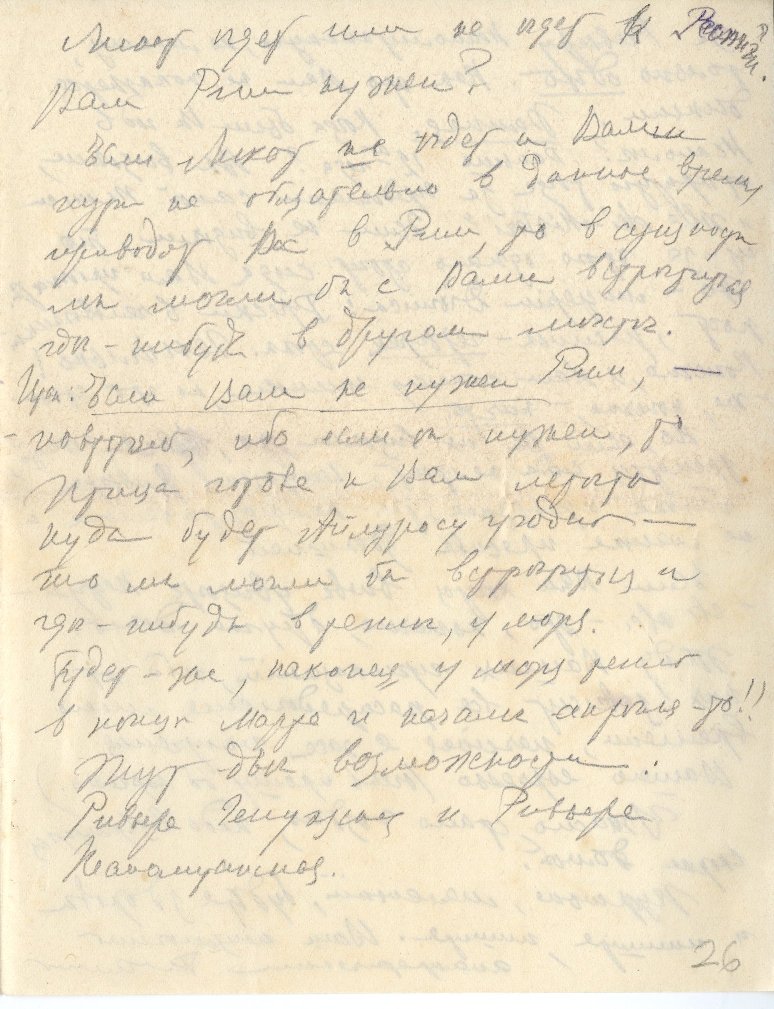 Ликот идет или не идет к
Вам Рим нужен?
Если Ликот не идет и Вами
пути не обязательно в данное время
приводят Вас в Рим, то в сущности
мы могли бы с Вами встретиться
где-нибудь в другом месте.
Если Вам не нужен Рим, —
повторяю, ибо если он нужен, то
Птица готова к Вам лететь
куда будет Айлуросу угодно —
то мы могли бы встретиться и
где-нибудь в тепле, у моря.
Будет-же, наконец, у моря тепло
в конце марта и начале апреля-то!!
Тут две возможности:
Ривьера Генуэзская и Ривьера
Неаполитанская.
26